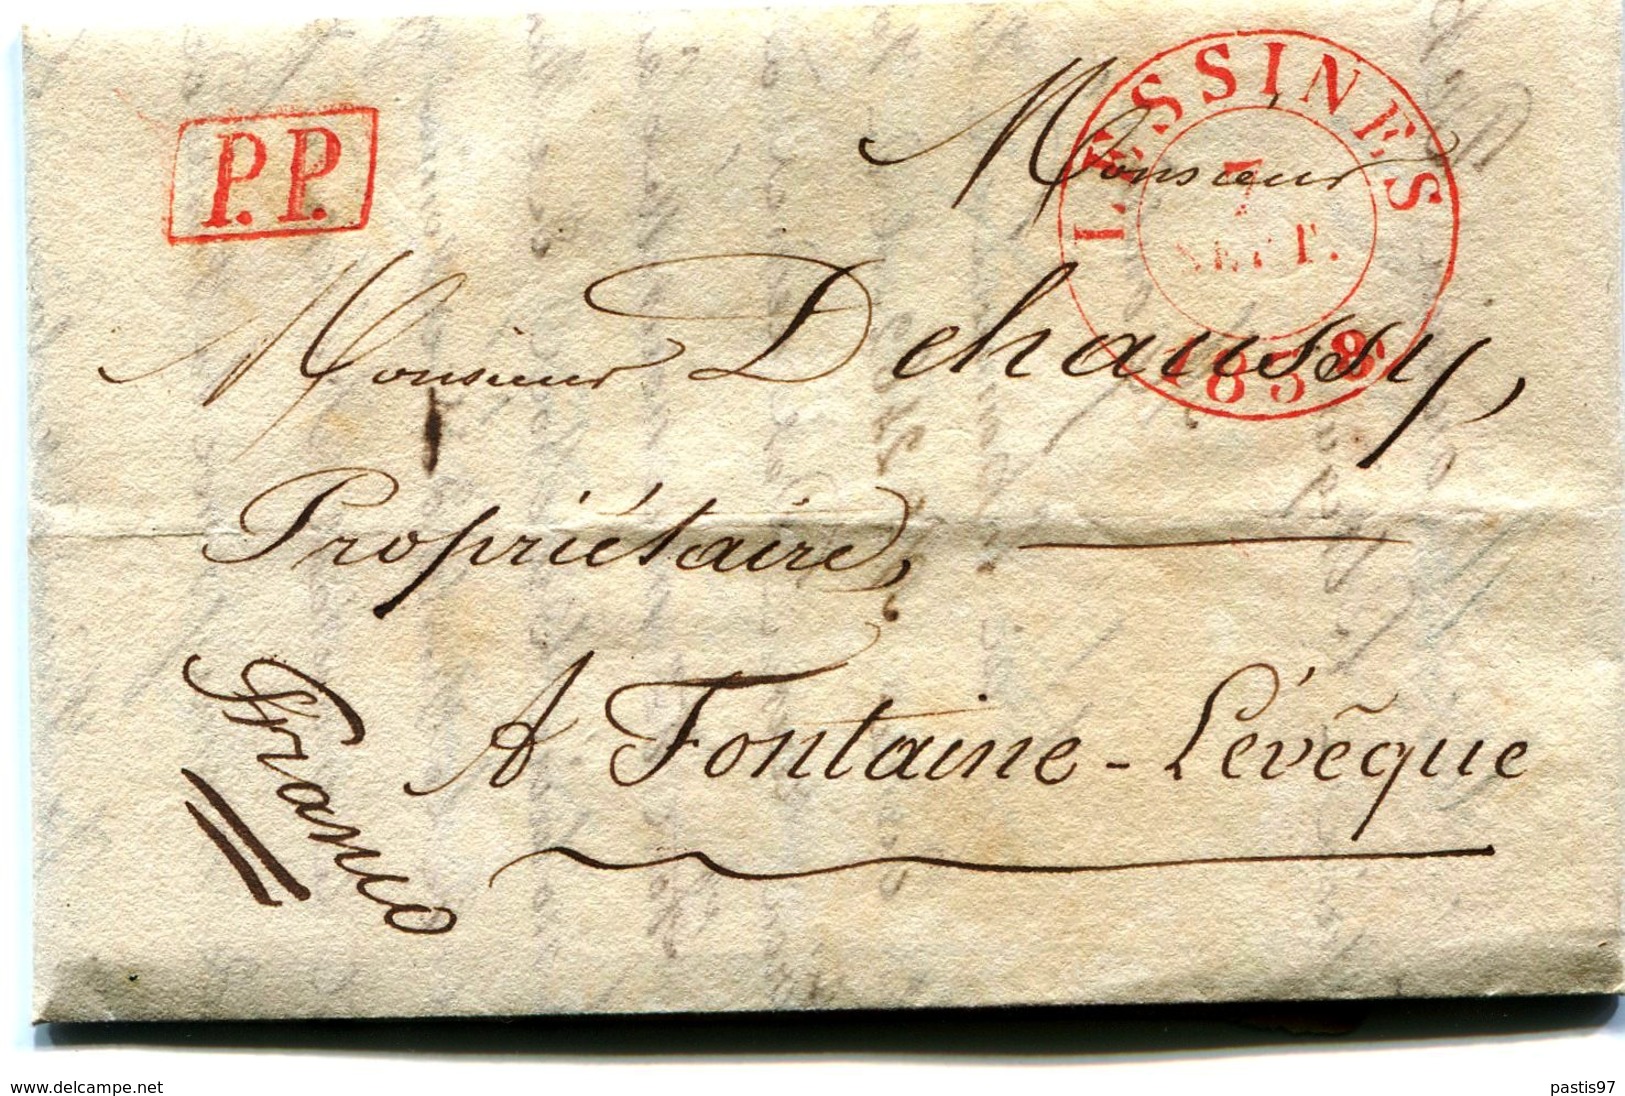 P.P.
LESSINES
7
SEPT.
1838
Monsieur
Monsieur Dehaussy,
Propriétaire,
A Fontaine-Lévêque
Franco
www.delcampe.net
pastis97